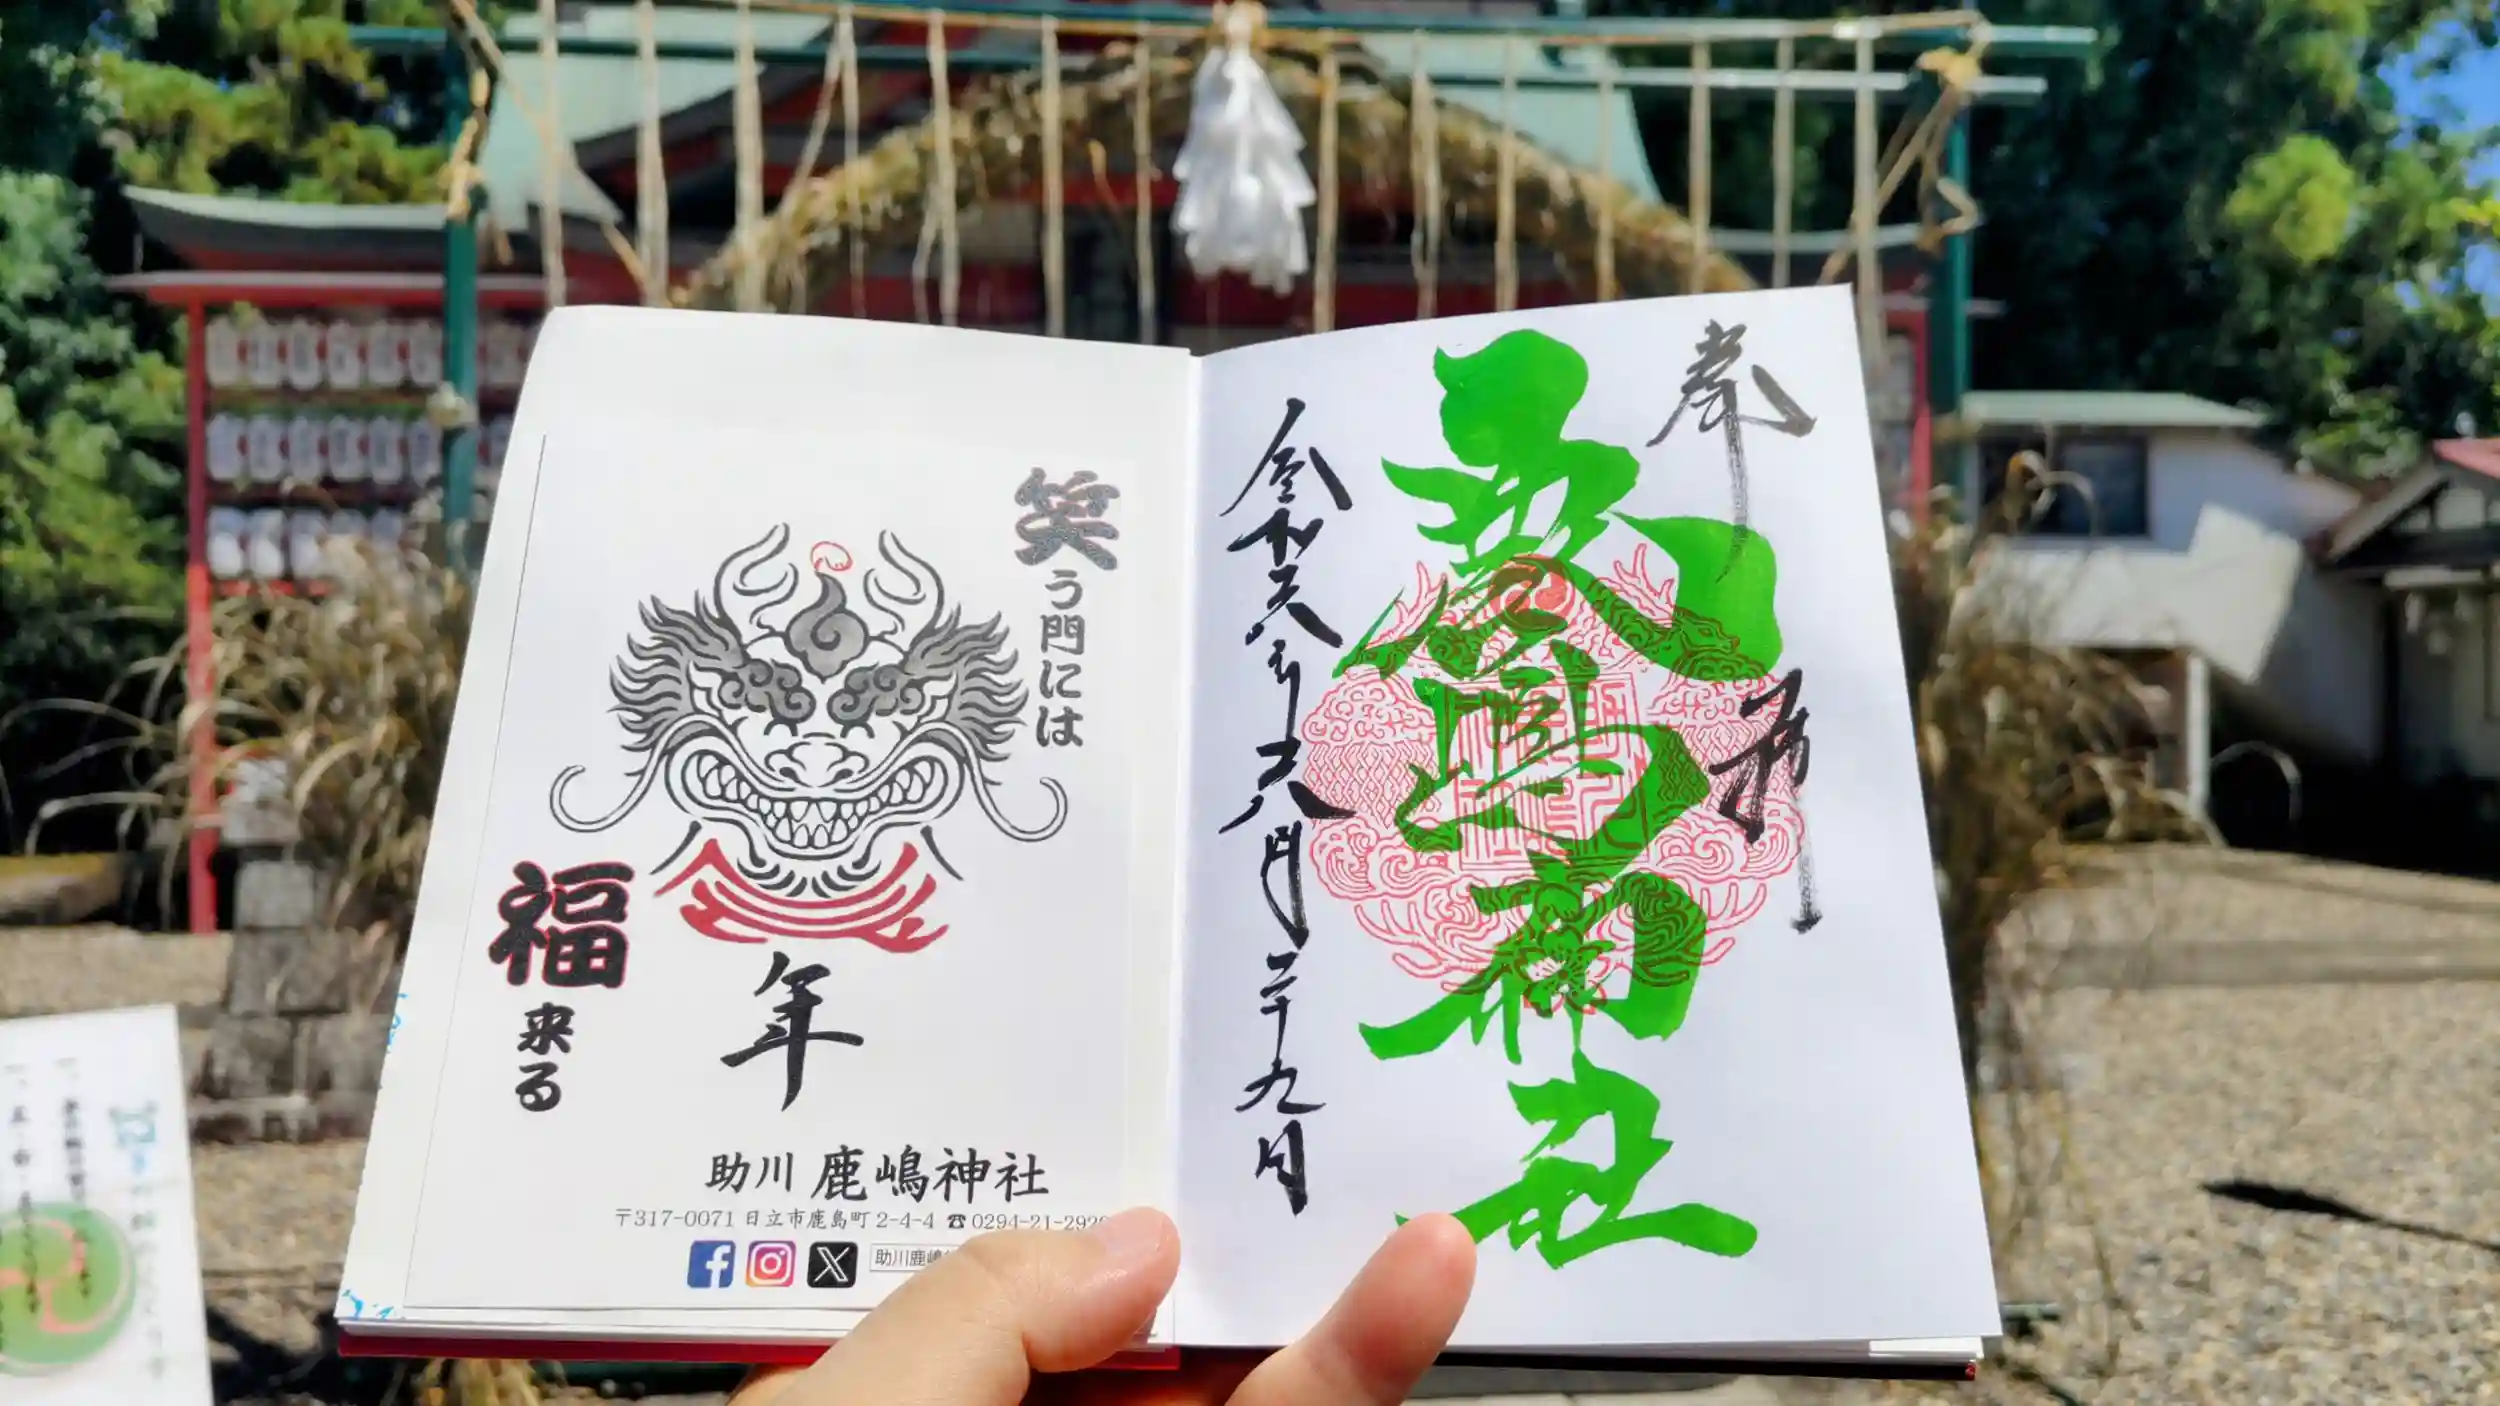 奉
拝
鹿嶋神社
令和六年六月二十九日
笑う門には
福来る
年
助川 鹿嶋神社
〒317-0071 日立市鹿島町2-4-4 ☎0294-21-292
助川鹿嶋